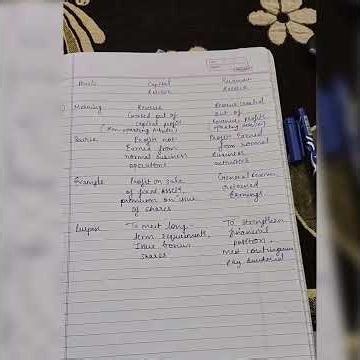 Basis Capital Reserve Revenue Reserve
1) Meaning Reserve Created out of capital profit Reserve created out of Revenue profit
Source Profit not Earned from normal business operations Profit Earned from normal business
Example Profit on sale of fixed Asset, premium on issue of shares General reserve, retained Earnings
Purpose To meet long-term requirements, Issue bonus shares To strengthen financial position, meet contingencies